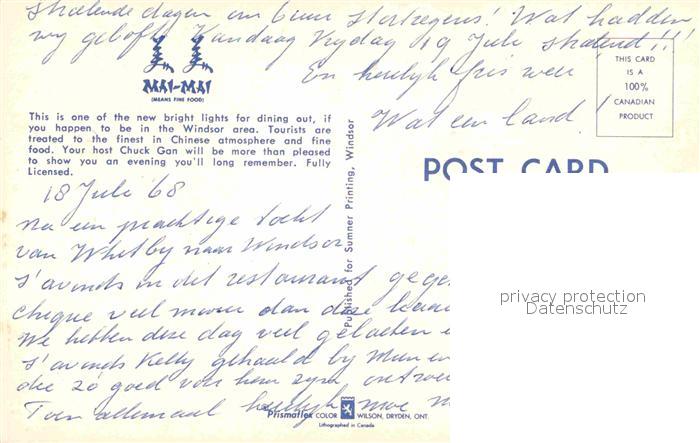 stralende dagen en 6 uur stortregens! Wat hadden
wy geboft Vandaag Vrydag 19 Juli stralend!!!
En heerlyk fris weer
Wat een land!
THIS CARD
IS A
100%
CANADIAN
PRODUCT
MAI-MAI
(MEANS FINE FOOD)
This is one of the new bright lights for dining out, if
you happen to be in the Windsor area. Tourists are
treated to the finest in Chinese atmosphere and fine
food. Your host Chuck Gan will be more than pleased
to show you an evening you'll long remember. Fully
Licensed.
POST CARD
18 Juli '68
Na een prachtige tocht
van Whitby naar Windsor
s'avonds in dit restaurant gege
chique veel mooier dan deze kaar
We hebben deze dag veel gelachen e
s'avonds Kelly gehaald by Mum en
die zo goed voor hem zyn
Toen allemaal heerlyk moe
Published for Sumner Printing, Windsor
privacy protection
Datenschutz
Prismaflex COLOR WILSON, DRYDEN, ONT.
Lithographed in Canada